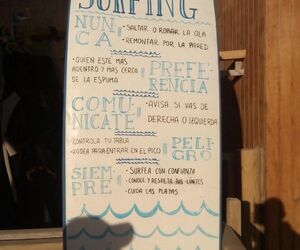 SURFING
NUN
CA
• SALTAR O ROBAR LA OLA
• REMONTAR POR LA PARED
• QUIEN ESTE MAS
ADENTRO Y MAS CERCO
DE LA ESPUMA
PREFE
RENCIA
COMU
NICATE
• AVISA SI VAS DE
DERECHA O IZQUIERDA
CONTROLA TU TABLA
• RODEA PARA ENTRAR EN EL PICO
PELI
GRO
SIEM
PRE
• SURFEA CON CONFIANZA
• CONOCE Y RESPETA TUS LIMITES
• CUIDA LAS PLAYAS